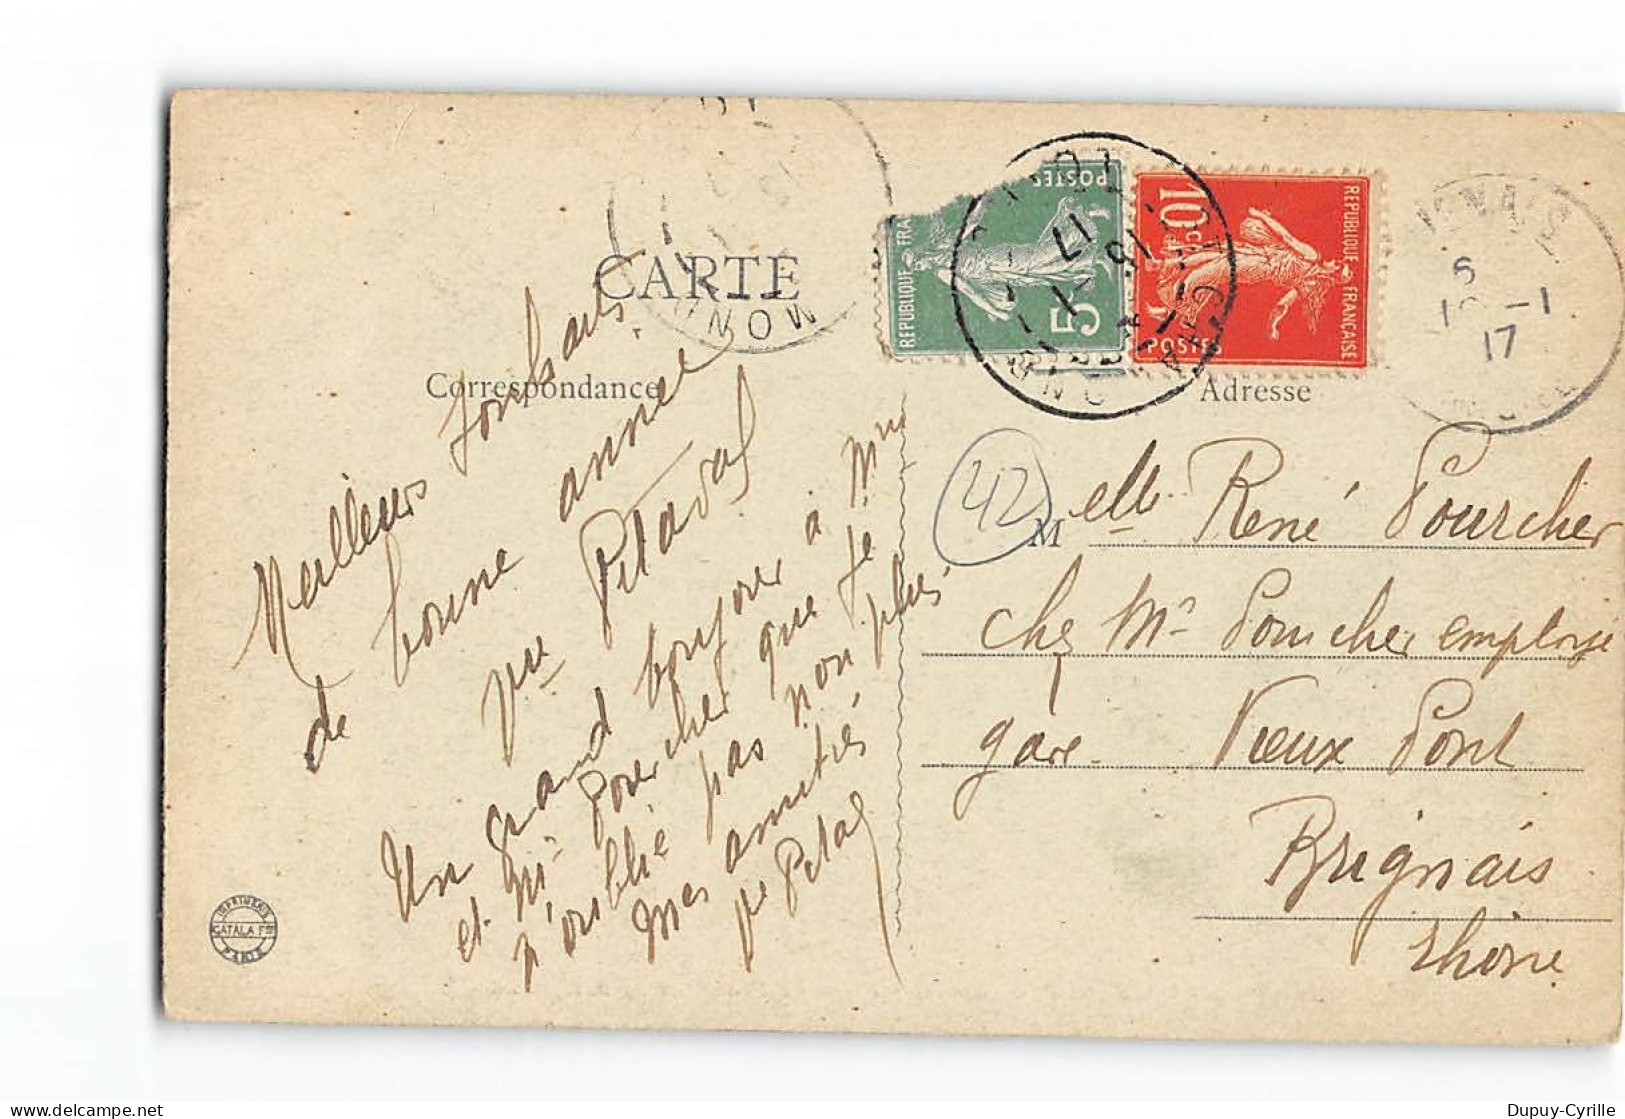 CARTE
Correspondance
Adresse
Meilleurs souhaits
de bonne année
Pitaval
Un grand bonjour à Mme
et Mr Pourcher que je
n'oublie pas non plus
mes amitiés
Pitaval
REPUBLIQUE FRA
POSTES
5
10 c
REPUBLIQUE FRANÇAISE
POSTES
MON
17
IGNAIS
6
10 -1
17
42
Melle René Pourcher
chez Mr Pourcher employé
gare Vieux Pont
Brignais
Rhône
IMPRIMERIE
CATALA Frs
PARIS
Dupuy-Cyrille